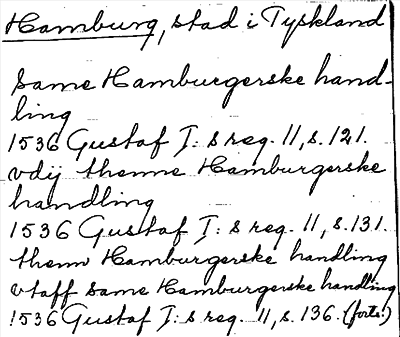 Hamburg, stad i Tyskland
same Hamburgerske hand-
ling
1536 Gustaf I:s reg. 11, s. 121.
vdij thenne Hamburgerske
handling
1536 Gustaf I:s reg. 11, s. 131.
thenn Hamburgerske handling
vtaff same Hamburgerske handling
1536 Gustaf I:s reg. 11, s. 136. (forts.)